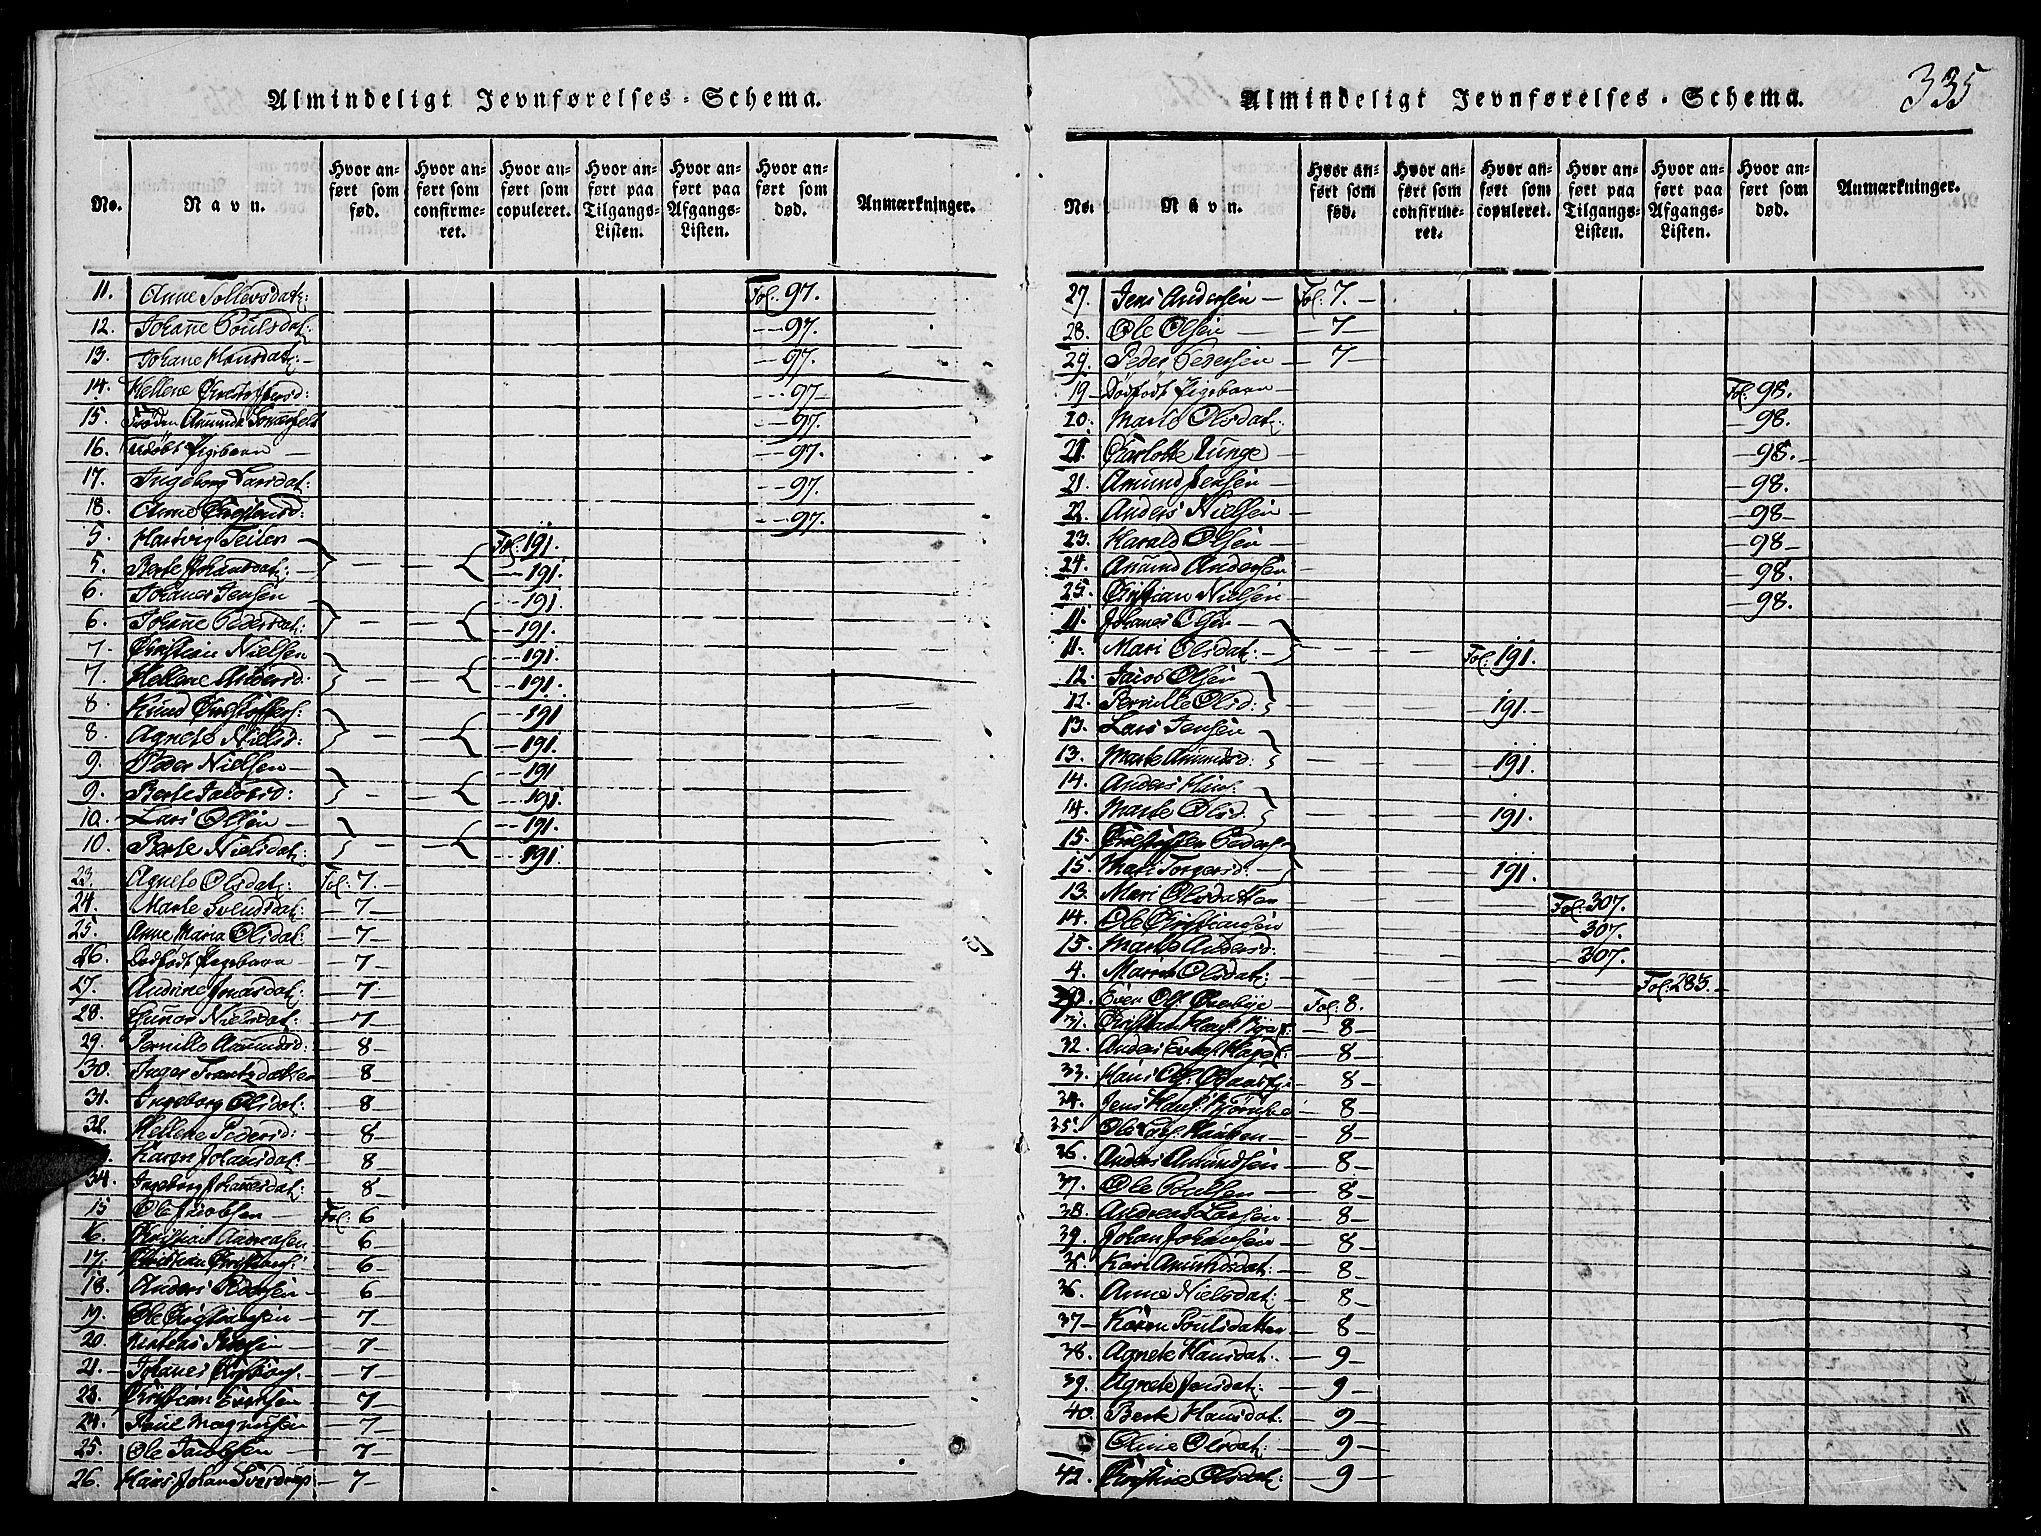 Almindeligt Jevnførelses-Schema.
No. Navn. Hvor anført som fød. Hvor anført som confirmeret. Hvor anført som copuleret. Hvor anført paa Tilgangs-Listen. Hvor anført paa Afgangs-Listen. Hvor anført som død. Anmærkninger.
11. Anne Tollersdat: Fol. 97.
12. Johane Poulsdat: - 97.
13. Johane Hansdat: - 97.
14. Hellene Christoffersd: - 97
15. Amund - 97.
16. Udøbt Pigebarn - 97.
17. Ingeborg Larsdat: - 97.
18. Anne - 97.
5. Hartvig Fol. 191.
5. Berte Johansdat: - 191.
6. Johanes Jensen - 191
6. Johane Pedersdat: - 191.
7. Christian Nielsen - 191
7. Hellene Andersd: - 191.
8. Knud Christoffers: - 191
8. Agnete Nielsd: - 191.
9. Peder Nielsen - 191
9. Berte Jacobsd: - 191.
10. Lars Olsen - 191.
10. Berte Nielsdat: - 191
23. Agnete Olsdat: Fol. 7.
24. Marte Svendsdat: - 7 -
25. Anne Maria Olsdat: - 7 -
26. Dødfødt Pigebarn - 7 -
27. Andrine Jonasdat: - 7 -
28. Gunor Nielsdat: - 7 -
29. Pernille Amundsd: - 8 -
30. Inger Frantzdatter - 8 -
31. Ingeborg Olsdat: - 8 -
32. Hellene Pedersd: - 8 -
Karen Johansdat: - 8
34. Ingeborg Johanesdat: - 8 -
15 Ole Jacobsen Fol. 6
16. Christian Andreasen - 6 -
17. Christian Christians: - 6 -
18. Anders Pedersen - 6
19. Ole Christiansen - 7
20. - 7 -
21. Johanes - 7
23. Christian - 7
24. Poul Magnusen - 7 -
25. Ole Jacobsen - 7 -
26. Hans Johan Sverdrup - 7 -
335
Almindeligt Jevnførelses-Schema.
No. Navn. Hvor anført som fød. Hvor anført som confirmeret. Hvor anført som copuleret. Hvor anført paa Tilgangs-Listen. Hvor anført paa Afgangs-Listen. Hvor anført som død. Anmærkninger.
27. Jens Andersen - Fol. 7. -
28. Ole Olsen - 7 -
29. Peder Pedersen - 7 -
19 - Dødfødt Pigebarn - Fol. 98.
20. Marte Olsdat: - 98.
21. Charlotte Lunge - 98. -
21. Amund Jensen - 98.
22. Anders Nielsen - 98 -
23. Harald Olsen - 98 -
24. Amund Andersen - 98.
25. Christian Nielsen - 98.
11. Johanes Olsen -
11. Mari Olsdat: - Fol. 191.
12. Jacob Olsen
12. Pernille Olsd: - 191 -
13. Lars Jensen
13. Marte Amundsd: - 191 -
14. Anders
14. Marte Olsd: - 191.
15. Christoffer Peders
15. Mari Torgersd: - 191.
13. Mari Olsdatter Fol. 307.
14. Ole Christiansen 307.
15. Marte Andersd: - 307.
4. Maren Olsdat: - Fol: 285. -
30. Even Ols: - Fol. 8.
31. Christian Hans: - 8 -
32. Anders - 8
33. Hans Ols: - 8 -
34. Jens Hans: - 8 -
35. Ole - 8 -
36. Anders Amundsen - 8 -
37. Ole Poulsen - 8 -
38. Andreas Larsen - 8 -
39. Johan Johansen - 8 -
35 Kari Amundsdat: - 8
36. Anne Nielsdat: - 8 -
37 - Karen Poulsdatter - 8 -
38. Agnete Hansdat: - 9 -
39. Agnete Jensdat: - 9 -
40. Berte Hansdat: - 9 -
Oline Olsdat: - 9 -
42. Christine Olsdat: - 9 -